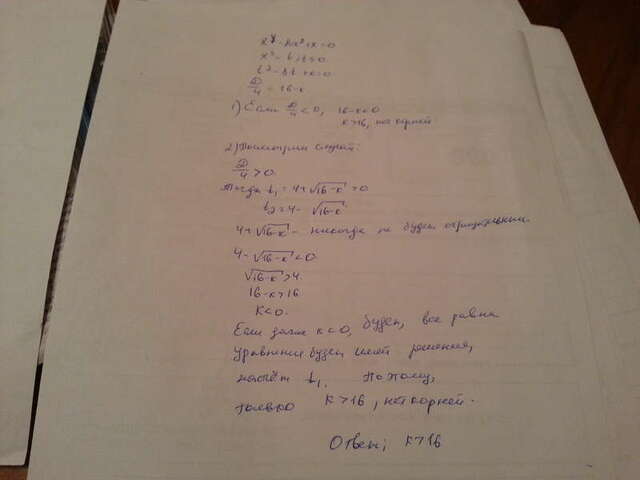 x⁴ - 8x² + k = 0
x² = t, t ≥ 0
t² - 8t + k = 0
D/4 = 16-k
1) Если D/4 < 0, 16-k<0
k>16, нет корней
2) Посмотрим случай:
D/4 > 0
Тогда t₁ = 4+√16-k > 0
t₂ = 4 - √16-k
4+√16-k - никогда не будет отрицательным.
4-√16-k < 0
√16-k > 4
16-k > 16
k<0.
Если даже k<0, будет, все равно
уравнение будет иметь решения,
насчёт t₁. Поэтому,
только k > 16, нет корней.
Ответ: k > 16